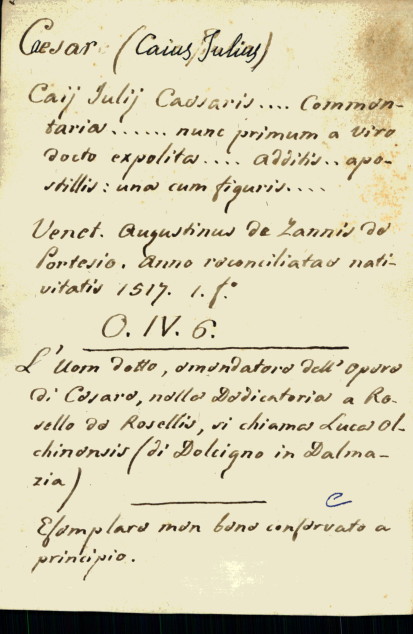 Caesar (Caius Julius)
Caij Julij Caesaris.... Commen-
taria...... nunc primum a viro
docto expolita.... additis.. apo-
stillis: una cum figuris....
Venet. Augustinus de Zannis de
Portesio. Anno reconciliatae nati-
vitatis 1517. 1. f.°
O. IV. 6.
L'Uom dotto, emendatore dell'Opera
di Cesare, nella Dedicatoria a Ro-
sello de Rosellis, si chiama Lucas Ol-
chinensis (di Dolcigno in Dalma-
zia)
C
Esemplare men bene conservato a
principio.